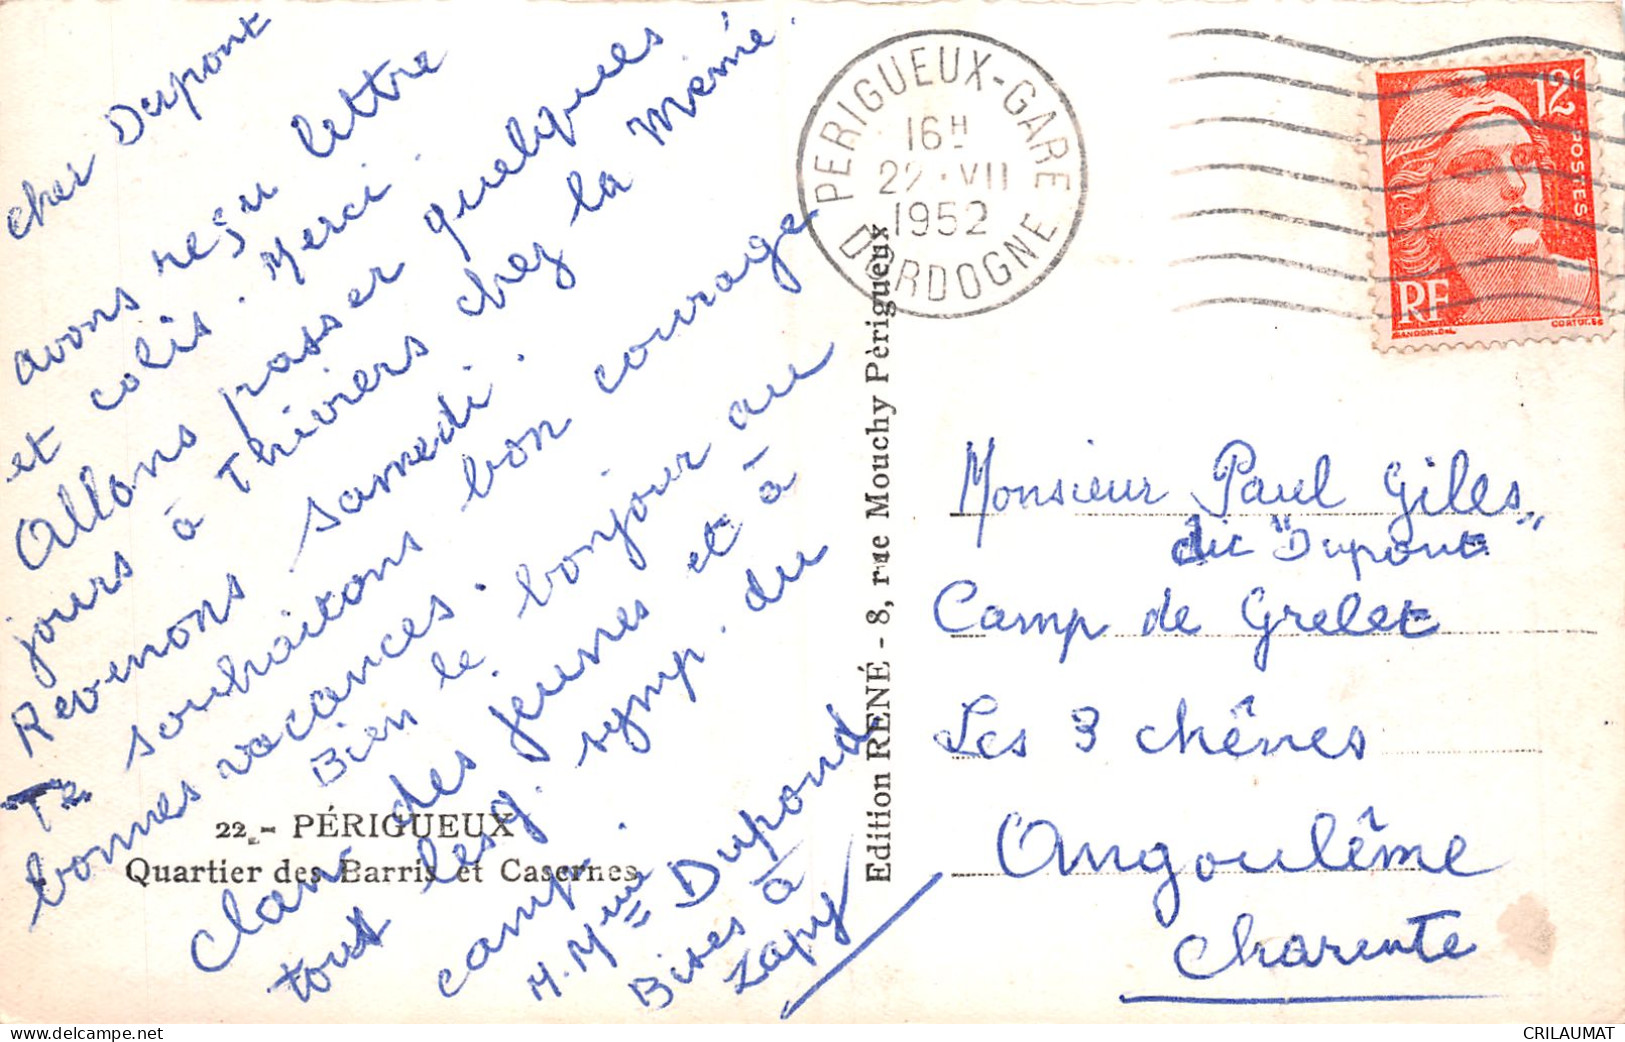 cher Dupont
avons reçu lettre
et colis. Merci.
Allons passer quelques
jours à Thiviers chez la Mémé.
Revenons samedi.
Te souhaitons bon courage
bonnes vacances.
Bien le bonjour au
clan des jeunes et à
tous les symp. du
camp.
M. Mme Dupond
Bises à
Zapy
22. - PÉRIGUEUX
Quartier des Barris et Casernes
Edition RENÉ - 8, rue Mouchy Périgueux
PERIGUEUX-GARE
16H
22·VII
1952
DORDOGNE
12F
POSTES
RF
GANDON.DEL
CORTOT.SC
Monsieur Paul Giles
dit "Dupont"
Camp de Grelet
Les 3 chênes
Angoulême
Charente
CRILAUMAT